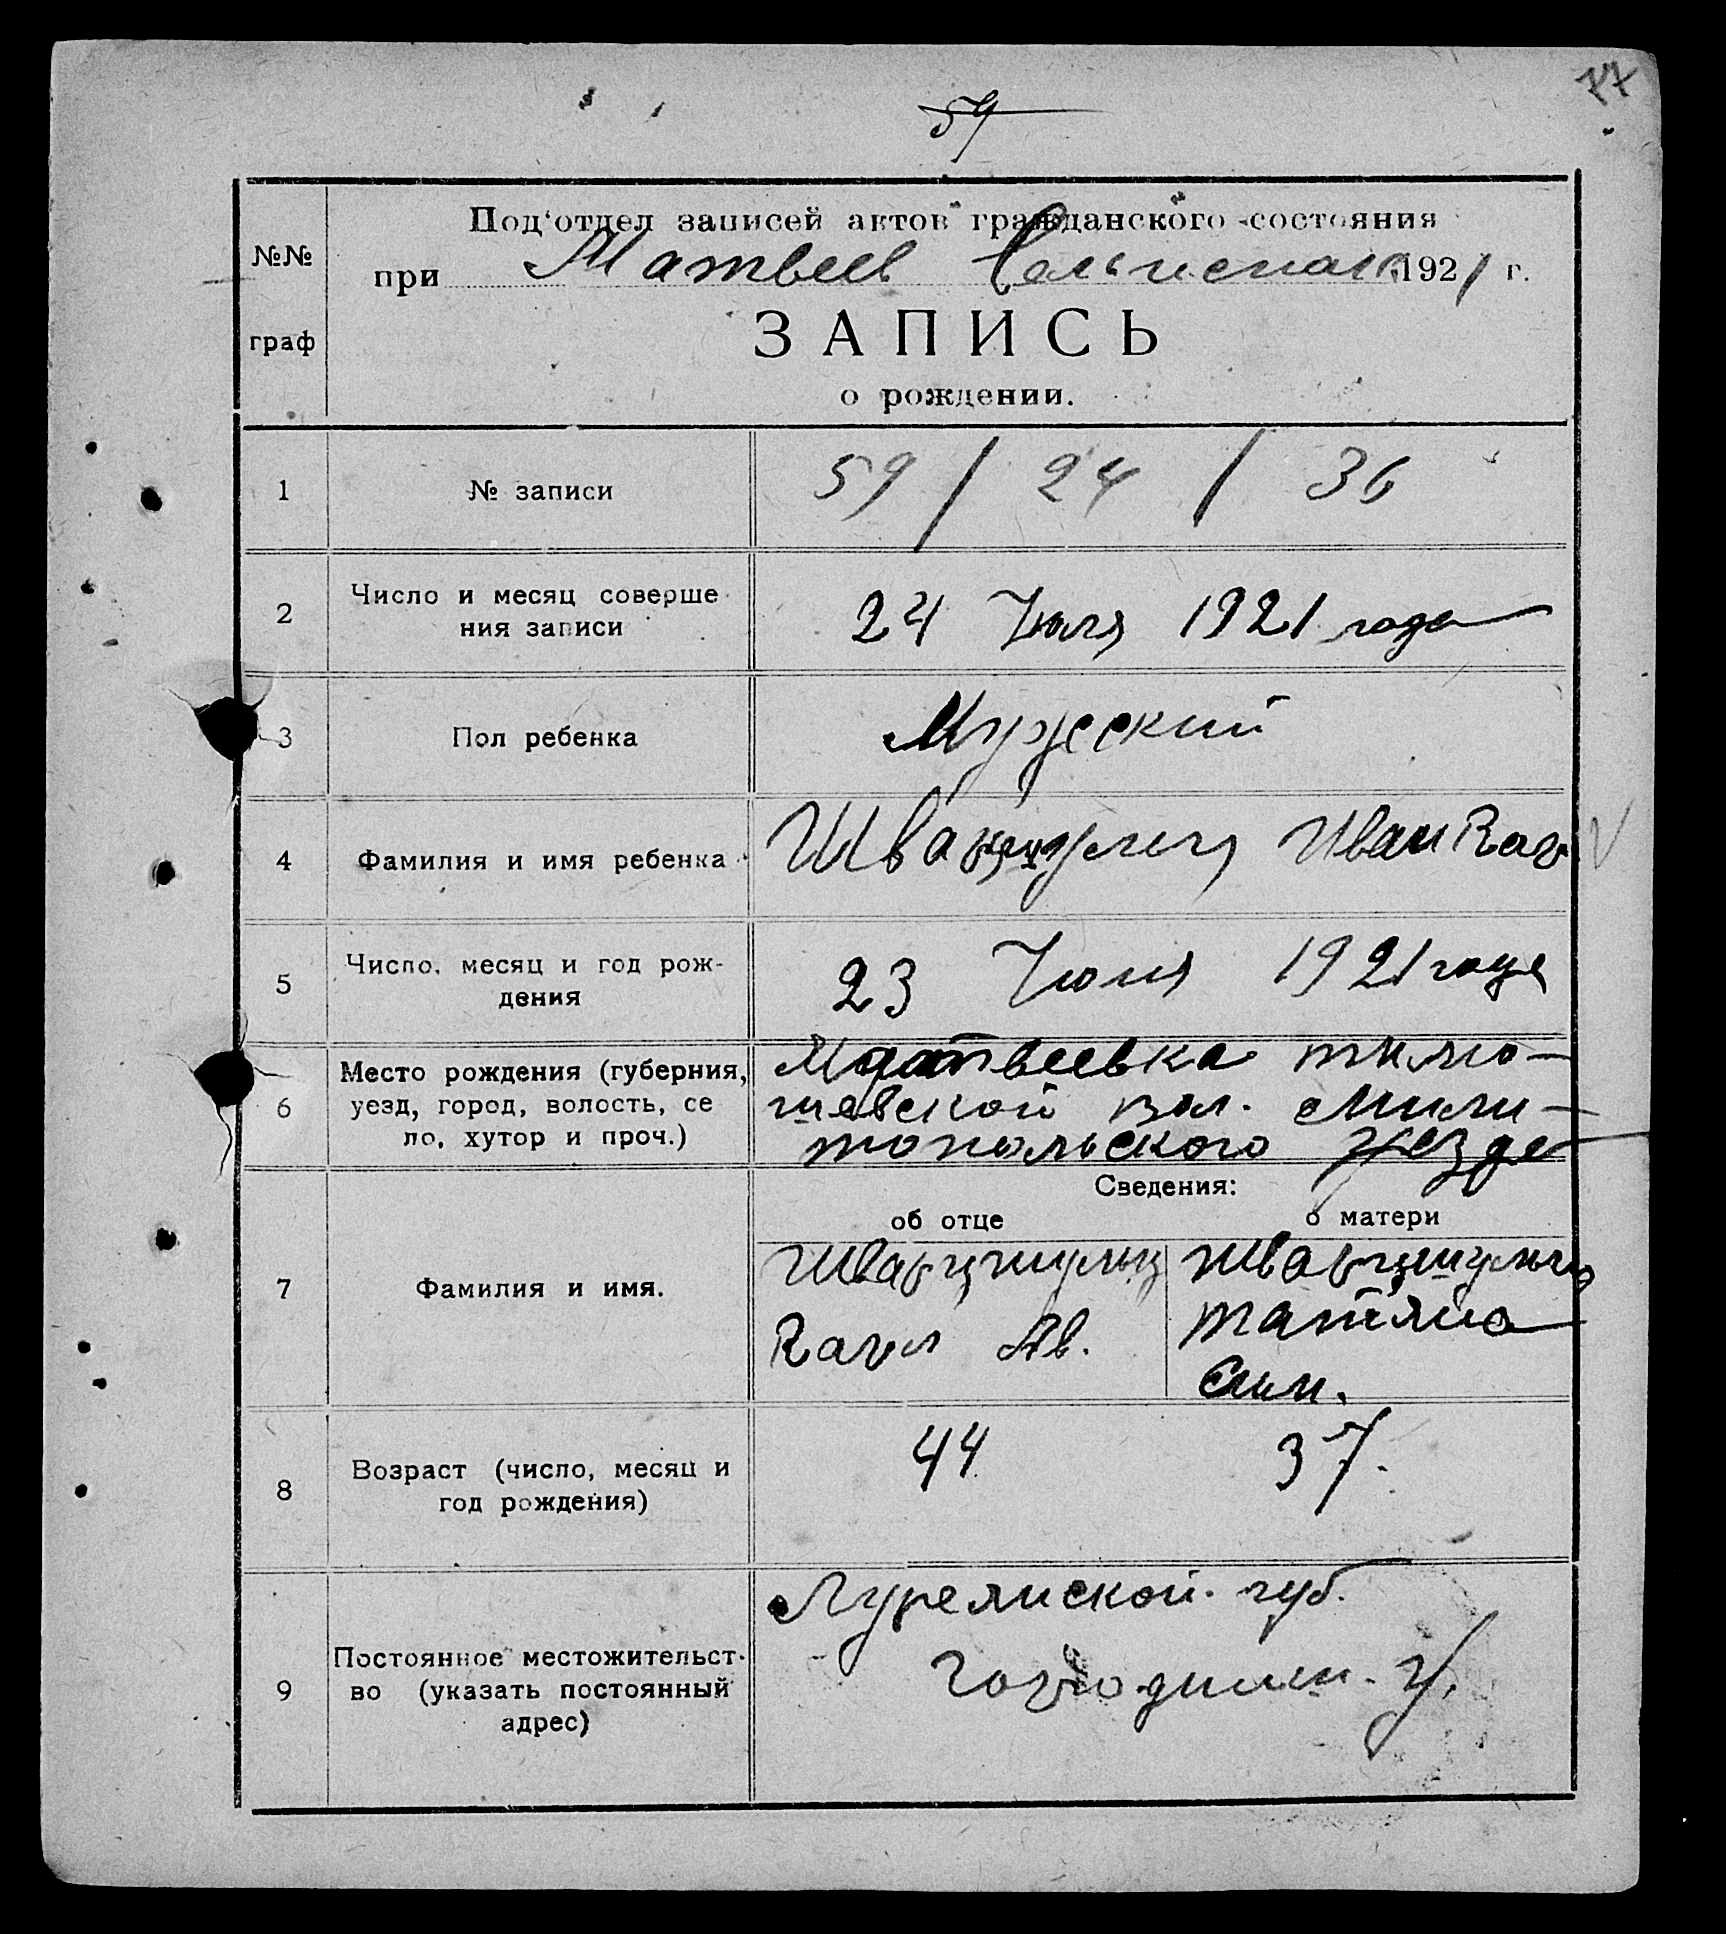 77
59
Под'отдел записей актов гражданского состояния
№№
граф
при Матвеев Сельисполк 1921 г.
ЗАПИСЬ
о рождении.
1 № записи 59 / 24 / 36
2 Число и месяц соверше
ния записи
24 Июля 1921 года
3 Пол ребенка Мужеский
4 Фамилия и имя ребенка Иван
5 Число, месяц и год рож-
дения
23 1921 года
6 Место рождения (губерния,
уезд, город, волость, се
ло, хутор и проч.)
Матвеевка тимо-
шевской вол. Мили-
топольского уезда
Сведения:
об отце о матери
7 Фамилия и имя.
Шварцшульц Шварцшульц
Карл Ав. Татяна
Сим.
8 Возраст (число, месяц и
год рождения)
44 37.
9 Постоянное местожительст-
во (указать постоянный
адрес)
губ.
у.